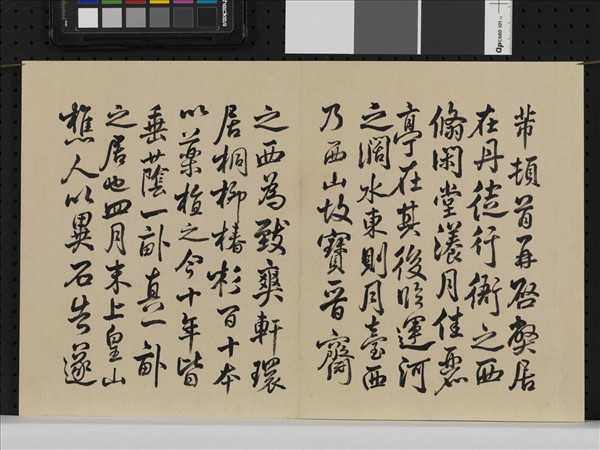 芾頓首再啓弊居
在丹徒行衙之西
翛閑堂漾月佳麗
亭在其後臨運河
之濶水東則月臺西
乃西山故寶晉齋
之西為致爽軒環
居桐柳椿杉百十本
以藥植之今十年皆
垂蔭一畝真一畝
之居也四月末上皇山
樵人以異石告遂
QPCARD 101